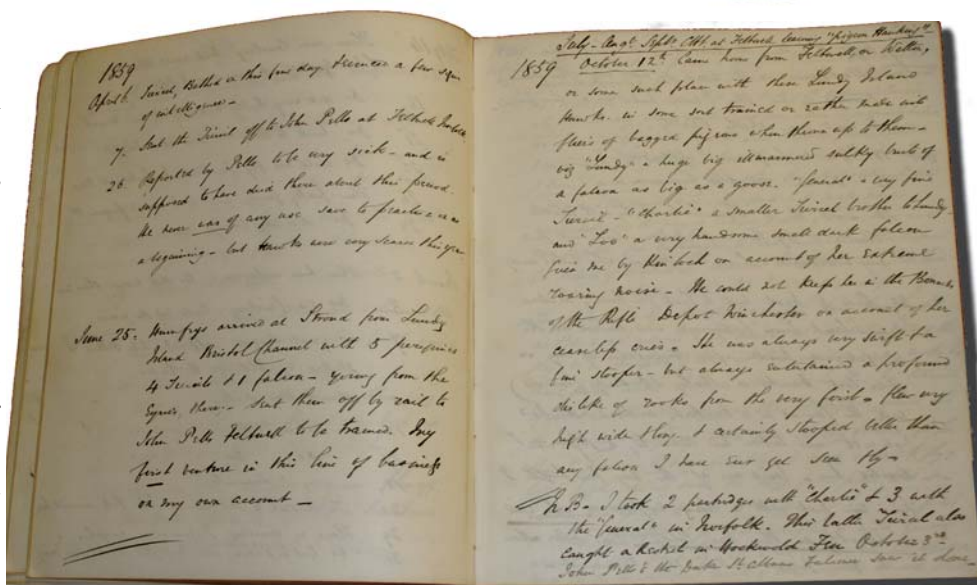 1859
April 6. Tiercel, Bathed in this fine day & evinced a few signs
of intelligence –
7. Sent the Tiercel off to John Pells at Feltwell Norfolk
26. Reported by Pells to be very sick – and is
supposed to have died there about this period.
He never was of any use save to practice on as
a beginning – but Hawks were very scarce this year
June 25. Humfrys arrived at Stroud from Lundy
Island Bristol Channel with 5 peregrines
4 Tiercels & 1 falcon – young from the
Eyries there – Sent them off by rail to
John Pells Feltwell to be trained. My
first venture in this line of business
on my own account –
July – Augt. Septr. Oct at Feltwell learning "pigeon Hawking"
1859 October 12th Came home from Feltwell, or Welton,
or some such place with these Lundy Island
Hawks. in some sort trained or rather made into
fliers of bagged pigeons when thrown up to them –
viz "Lundy" a huge big illmannered sulky brute of
a falcon as big as a goose. "General" a very fine
Tiercel – "Charlie" a smaller Tiercel brother to Lundy
and "Loo" a very handsome small dark falcon
given me by Kinloch on account of her extreme
roaring noise – He could not keep her in the Barracks
of the Rifle Depot Winchester on account of her
ceaseless cries. She was always very swift & a
fine stooper – but always entertained a profound
dislike of rooks from the very first – flew very
high wide & long. & certainly stooped better than
any falcon I have ever yet seen fly –
N.B. – I took 2 partridges with "Charlie" & 3 with
the "General" in Norfolk. This latter Tiercel also
caught a Kestrel in Hockwold Fen October 3rd –
John Pells & the Duke St Albans falconer saw it done